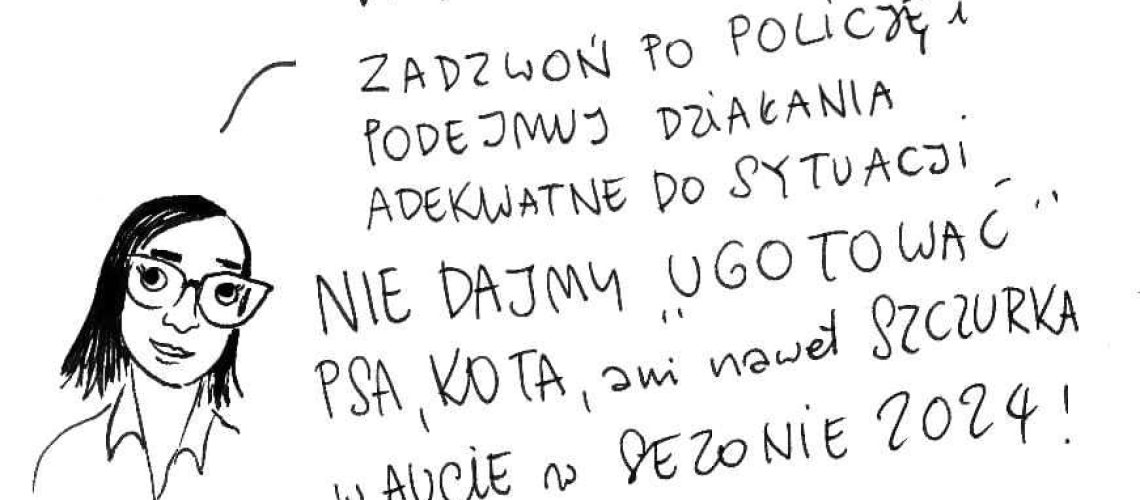 ZADZWOŃ PO POLICJĘ i
PODEJMUJ DZiAŁANIA
ADEKWATNE DO SYTUACJi
NIE DAJMY „UGOTOWAĆ”
PSA, KOTA, ani nawet SZCZURKA
w AUCIE w SEZONIE 2024!